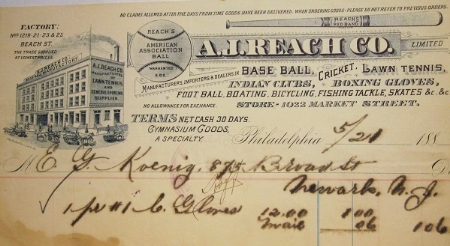 NO CLAIMS ALLOWED AFTER FIVE DAYS FROM TIME GOODS HAVE BEEN DELIVERED. PLEASE DO NOT REFER TO PREVIOUS ORDERS.
FACTORY.
Nos 1219-21-23 & 25
BEACH ST.
REACH'S
AMERICAN
ASSOCIATION
BALL
A.J. REACH CO.
LIMITED
MANUFACTURERS, IMPORTERS & DEALERS IN
BASE BALL, CRICKET, LAWN TENNIS,
INDIAN CLUBS, - BOXING GLOVES,
FOOT BALL, BOATING, BICYCLING, FISHING TACKLE, SKATES &c. &c.
NO ALLOWANCE FOR EXCHANGE
STORE - 1022 MARKET STREET.
TERMS NET CASH 30 DAYS.
GYMNASIUM GOODS,
A SPECIALTY.
Philadelphia 5/21 188
M E. G. Koenig, 875 Broad St
Newark, N. J.
1 pr #1 C. Gloves 12.00 1.00
mail 06 106